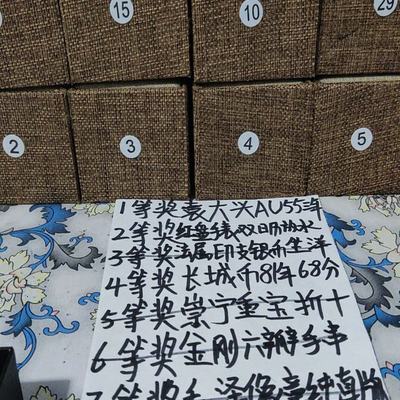 15
10
29
2
3
4
5
1等奖袁大头AU55深
2等奖红盒双明
3等奖法属印支银币坐洋
4等奖长城币81年68分
5等奖崇宁重宝折十
6等奖金刚六瓣手串
7等奖毛泽像章钟